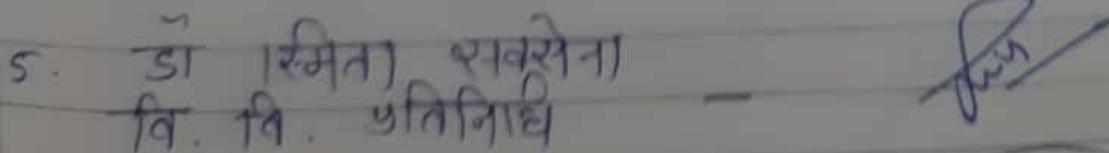 5. डॉ स्मिता सक्सेना
वि. वि. प्रतिनिधि -